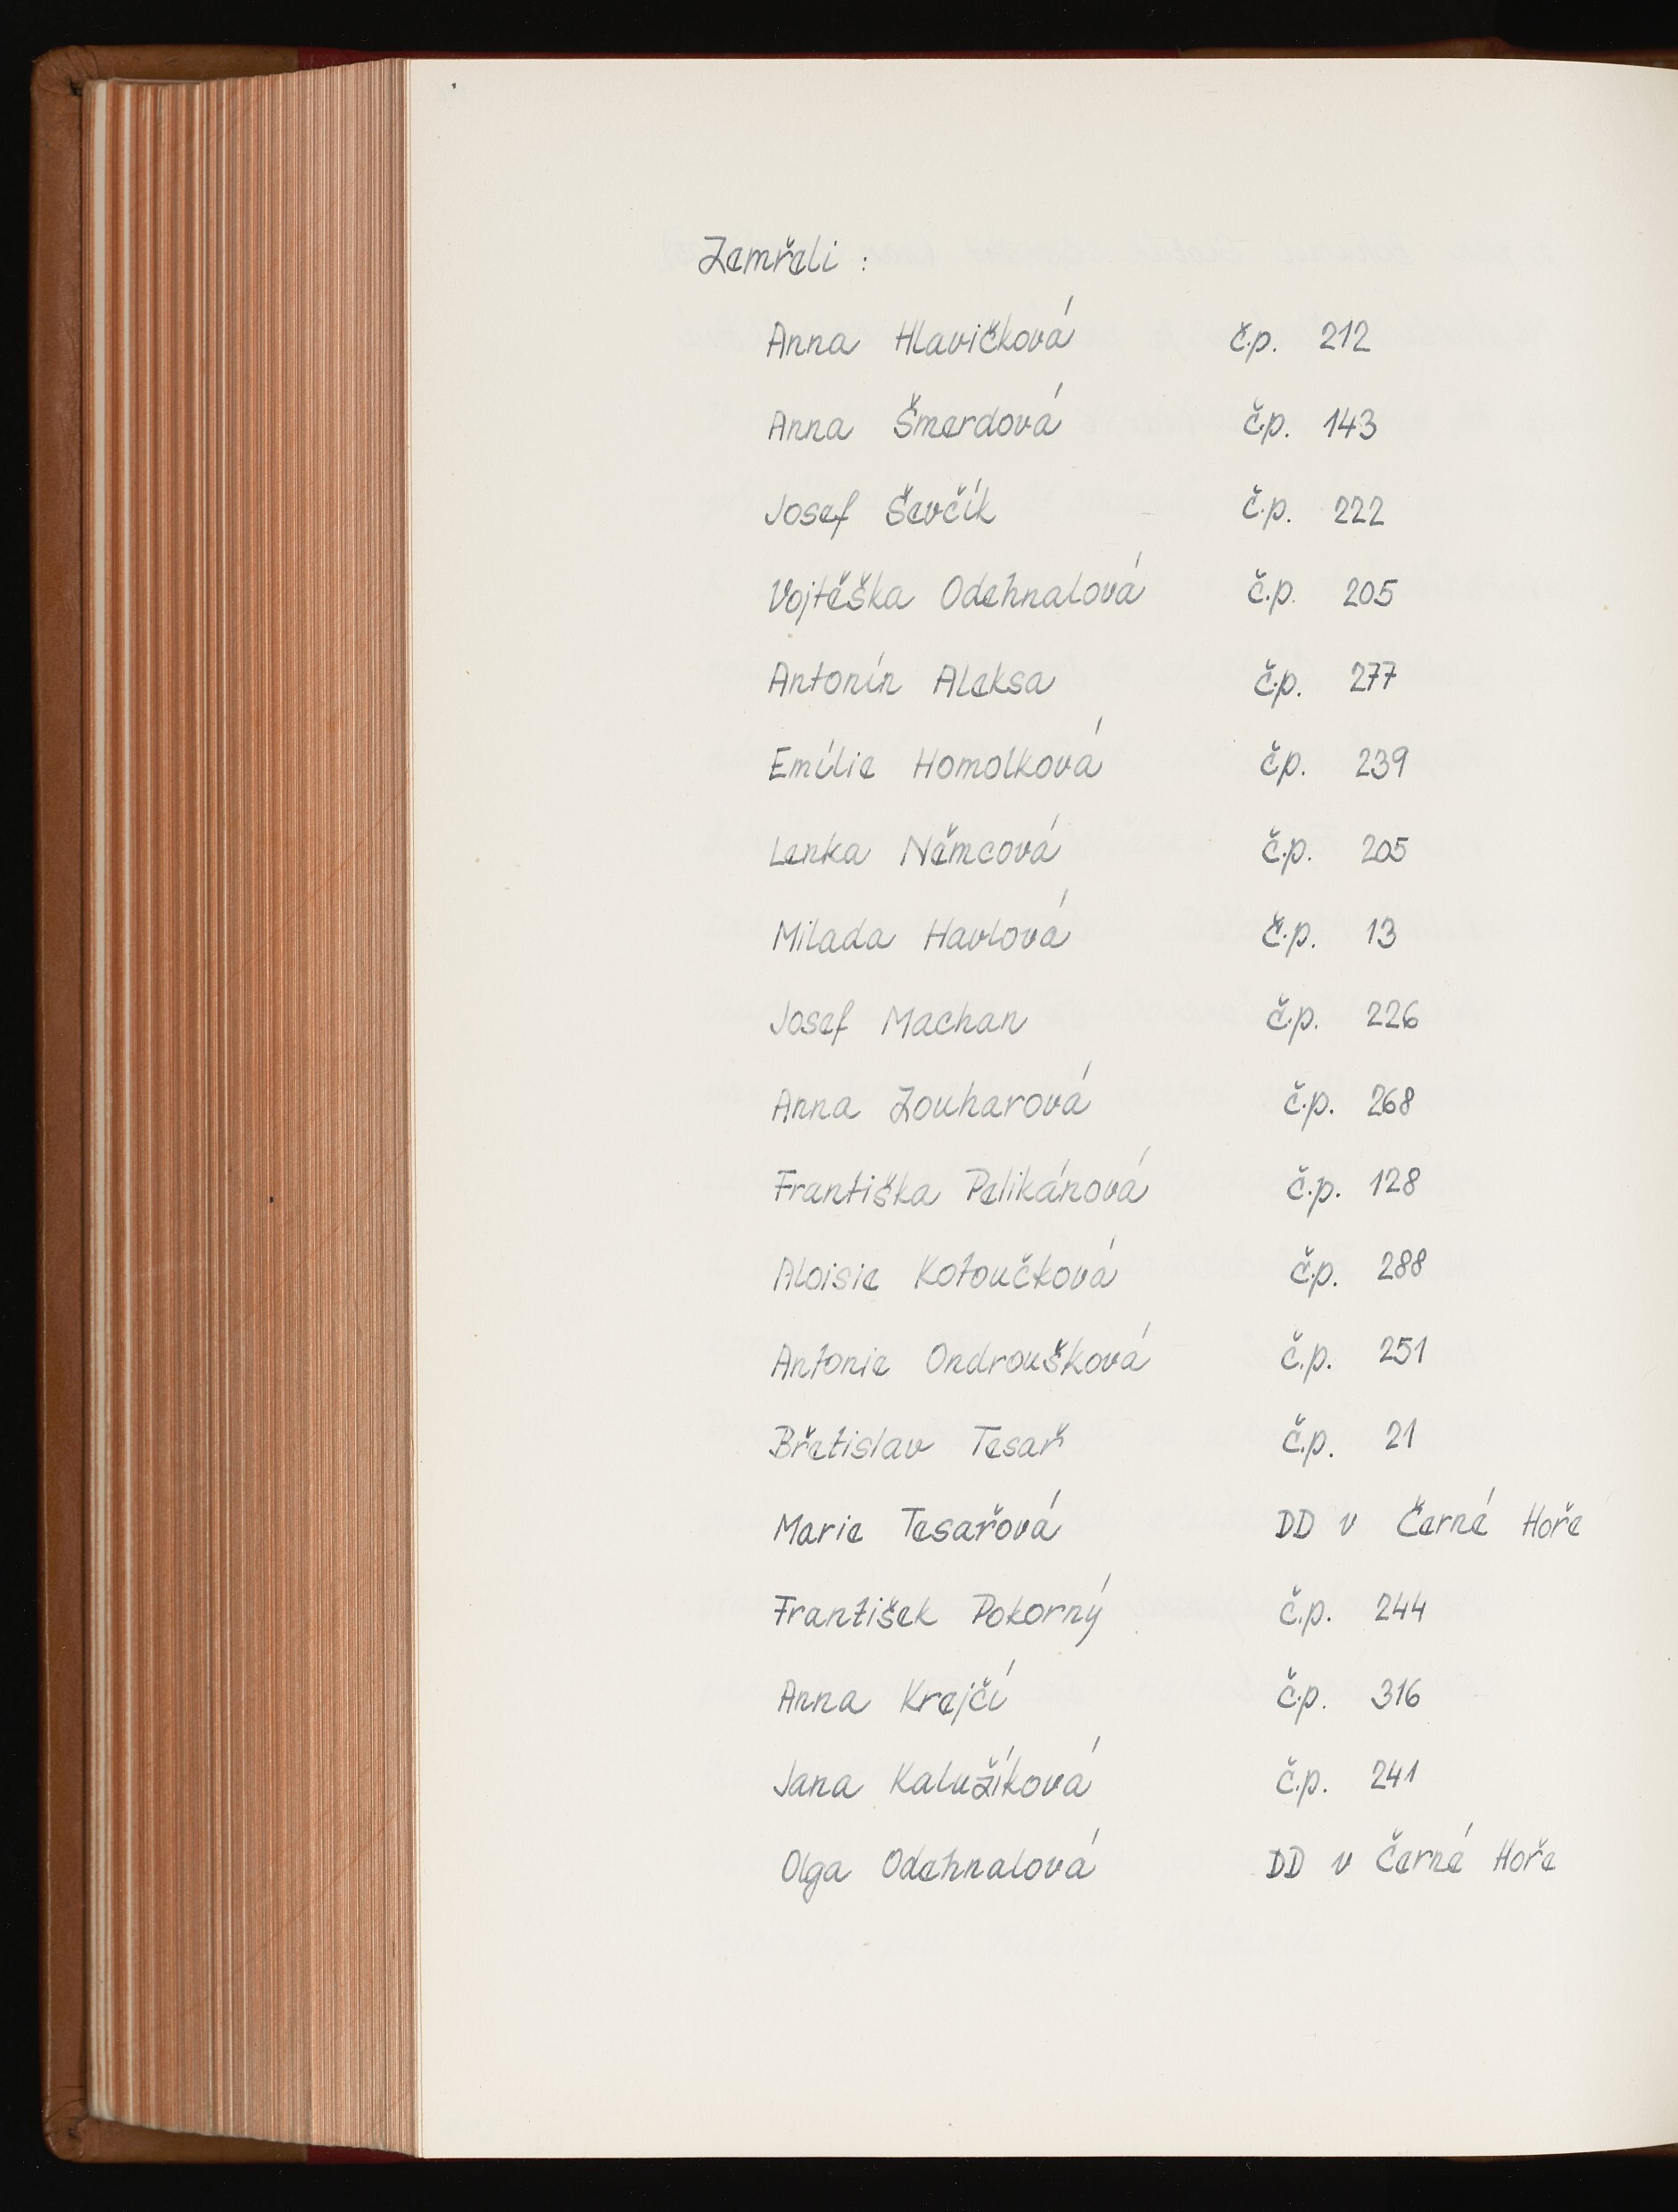 Zemřeli :
Anna Hlavičková č.p. 212
Anna Šmerdová č.p. 143
Josef Ševčík č.p. 222
Vojtěška Odehnalová č.p. 205
Antonín Aleksa č.p. 277
Emílie Homolková čp. 239
Lenka Němcová č.p. 205
Milada Havlová č.p. 13
Josef Machan č.p. 226
Anna Zouharová č.p. 268
Františka Pelikánová č.p. 128
Aloisie Kotoučková č.p. 288
Antonie Ondroušková č.p. 251
Břetislav Tesař č.p. 21
Marie Tesařová DD v Černé Hoře
František Pokorný č.p. 244
Anna Krejčí č.p. 316
Jana Kalužíková č.p. 241
Olga Odehnalová DD v Černé Hoře